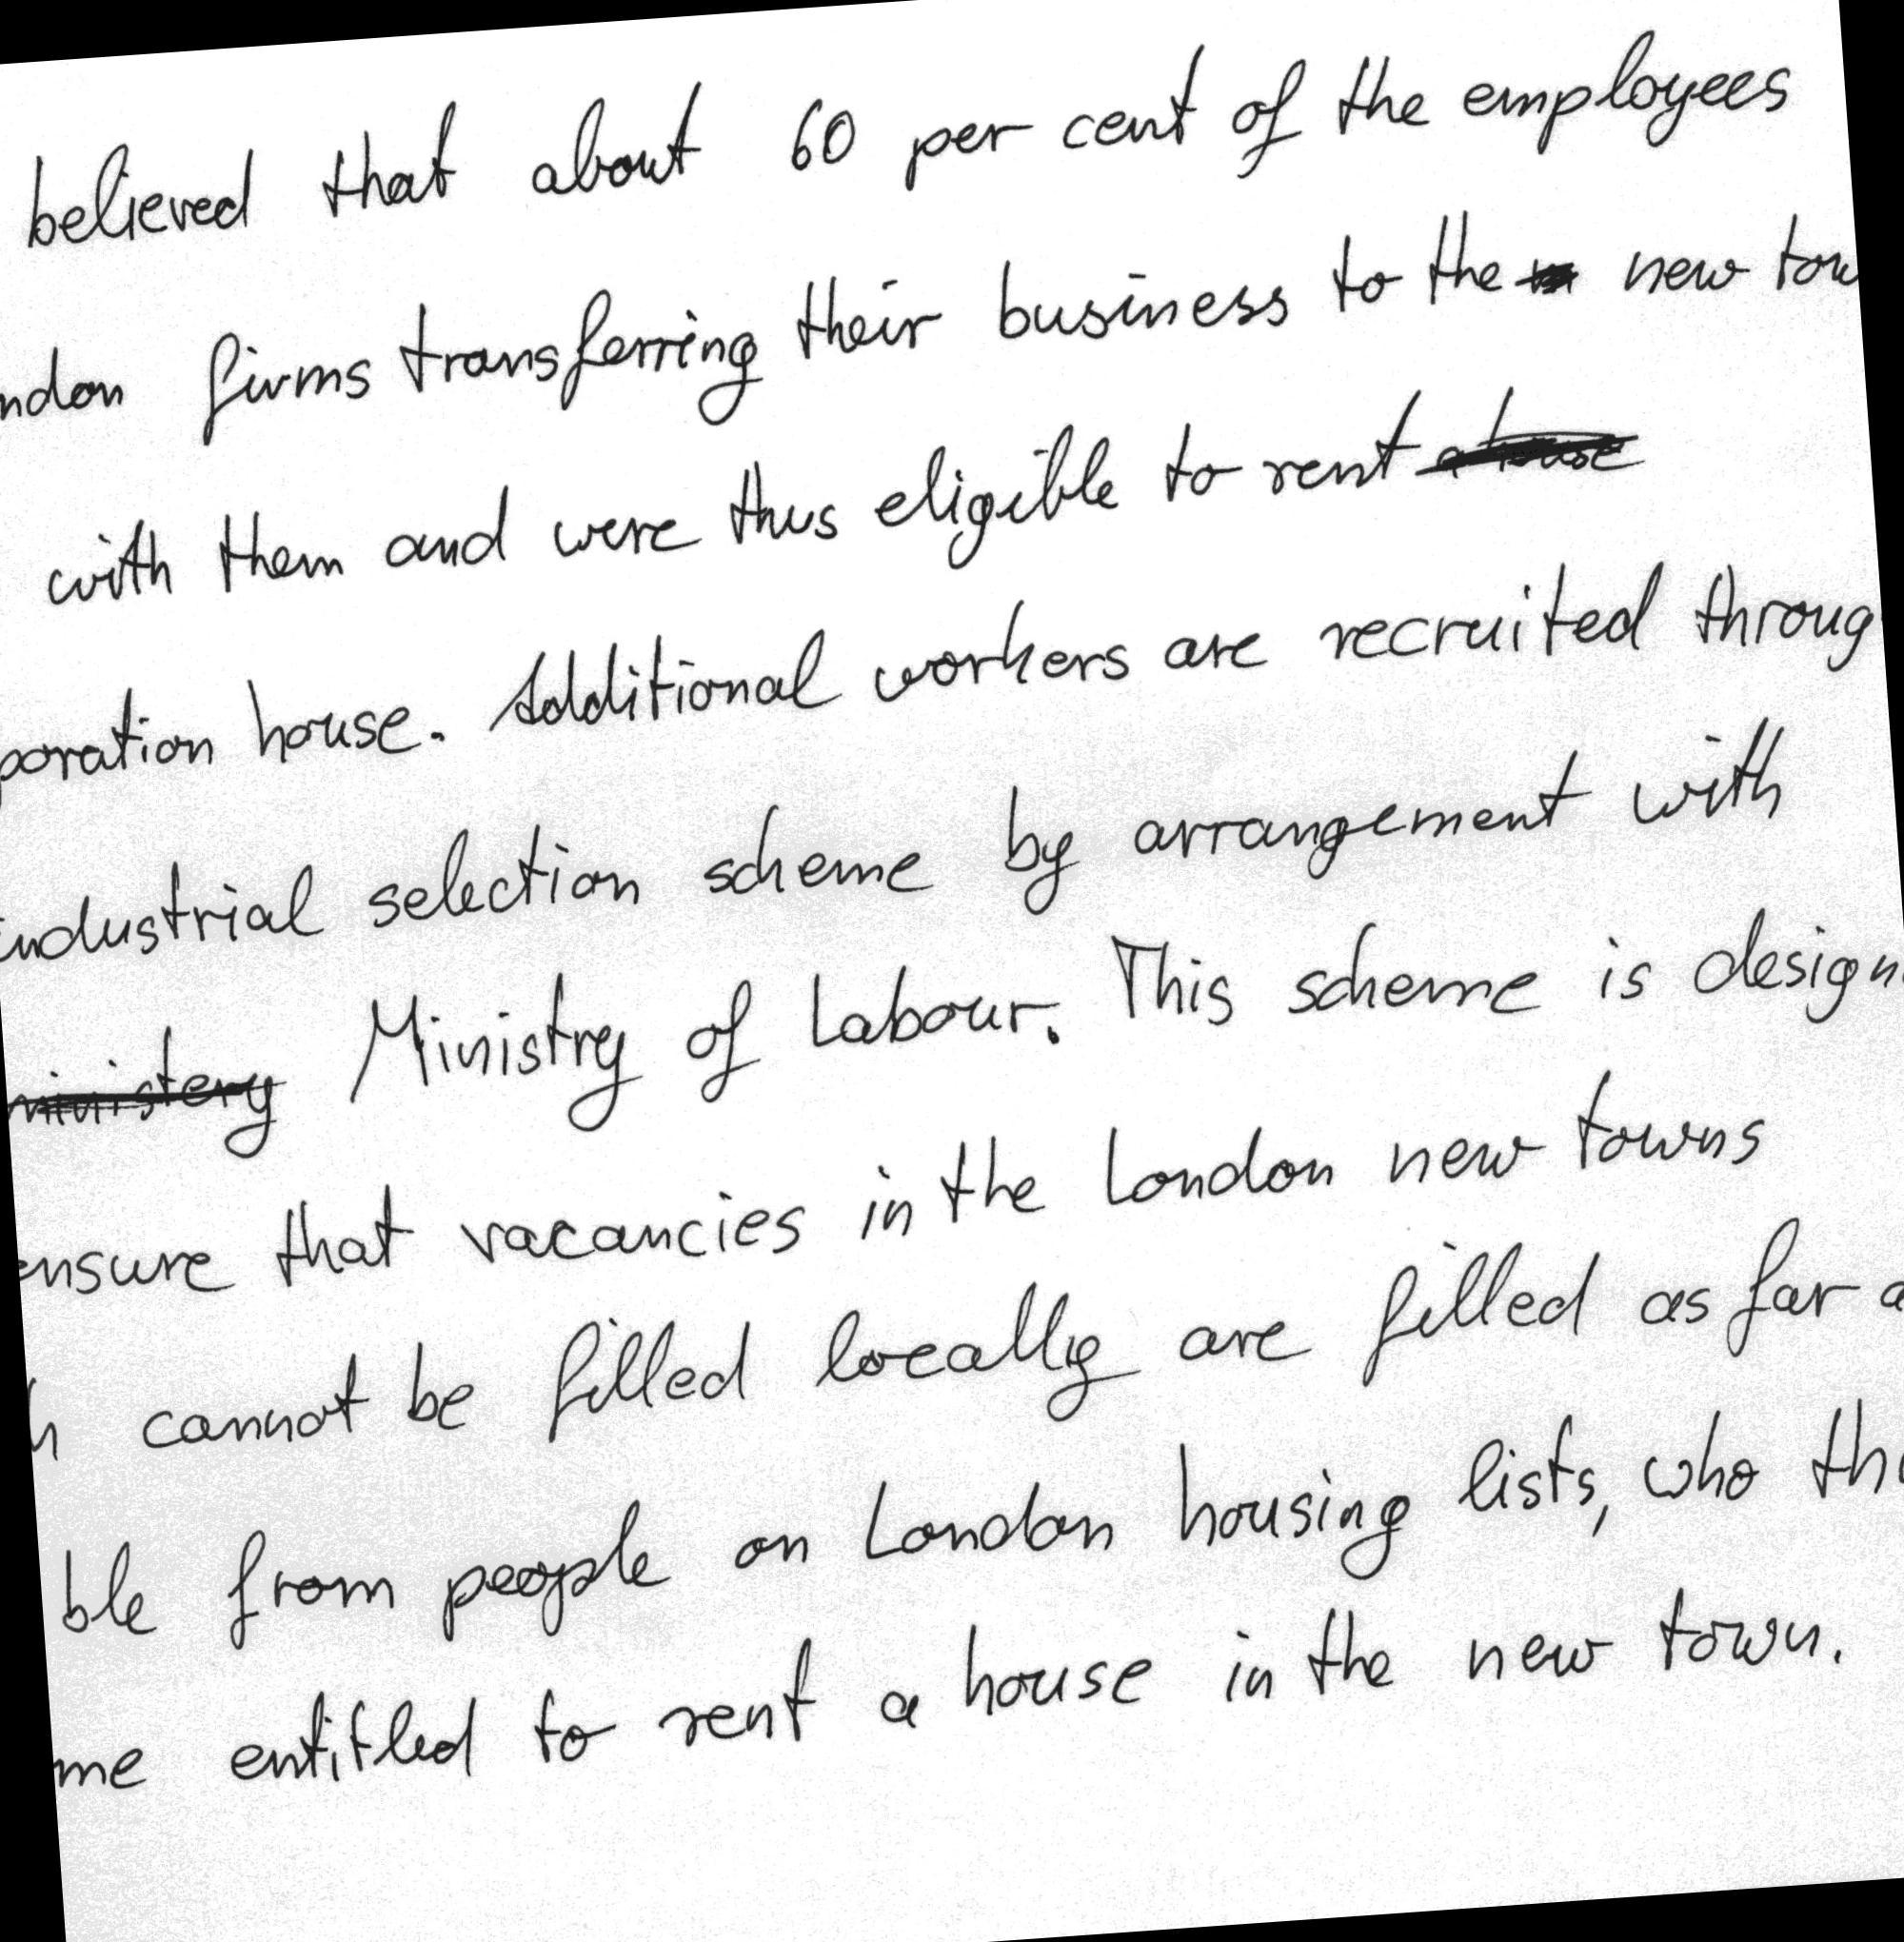 believed that about 60 per cent of the employees
ndon firms transferring their business to the new tow
with them and were thus eligible to rent
poration house. Additional workers are recruited throug
industrial selection scheme by arrangement with
Ministry of Labour. This scheme is design
ensure that vacancies in the London new towns
cannot be filled locally are filled as far a
ble from people on London housing lists, who th
me entitled to rent a house in the new town.